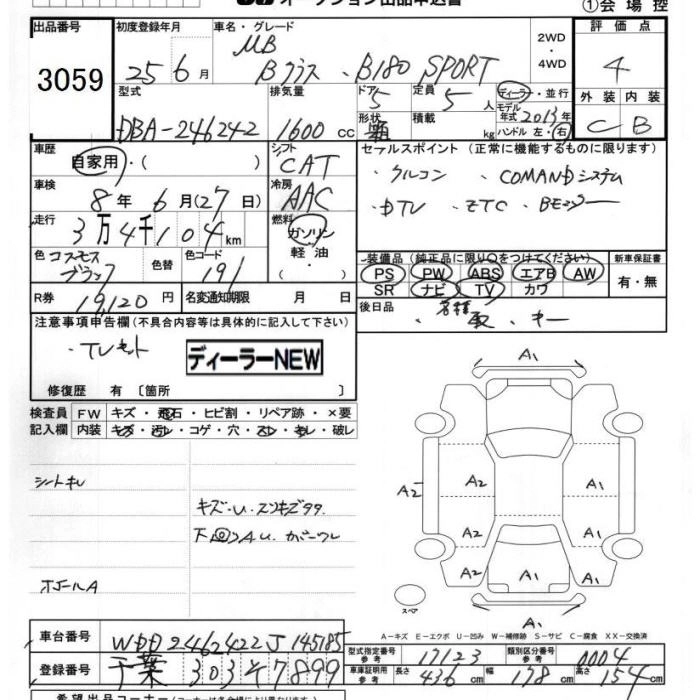 オークション出品申込書
①会場控
出品番号 初度登録年月 車名・グレード 2WD ・ 4WD 評価点
3059 25年6月 MB Bクラス・B180 SPORT 4
型式 排気量 ドア 定員 ディーラー・並行 外装 内装
DBA-246242 1600cc 5 5人 モデル年式 2013年 C B
形状 箱 積載 kg ハンドル 左・右
車歴 シフト セールスポイント (正常に機能するものに限ります)
自家用・( ) CAT ・クルコン ・COMANDシステム
車検 冷房 ・DTV ・ETC
8年6月(27日) AAC
走行 燃料
3万4千104km ガソリン・軽油・( )
色 コスモスブラック 色替 色コード 191
装備品(純正品に限り○をつけてください) 新車保証書
PS PW ABS エアB AW 有・無
SR ナビ TV カワ
R券 19,120円 名変通知期限 月 日
後日品 ・キー
注意事項申告欄(不具合内容等は具体的に記入して下さい)
・TVキット ディーラーNEW
修復歴 有 [箇所
検査員 FW キズ・飛石・ヒビ割・リペア跡・×要
記入欄 内装 キズ・汚レ・コゲ・穴・スレ・キレ・破レ
シートキレ
キズ・U・スリキズ
A U. カバーワレ
ホイールA
A1
A2 A2 A1
A2 A1
A2 A1 A1
スペア
A1
A-キズ E-エクボ U-凹み W-補修跡 S-サビ C-腐食 XX-交換済
車台番号 WDD2462422J145185
型式指定番号 参考 17123 類別区分番号 参考 0004
登録番号 千葉 303 そ 7899
車庫証明用 参考 長さ 436cm 幅 178cm 高さ 154cm
希望出品コーナー